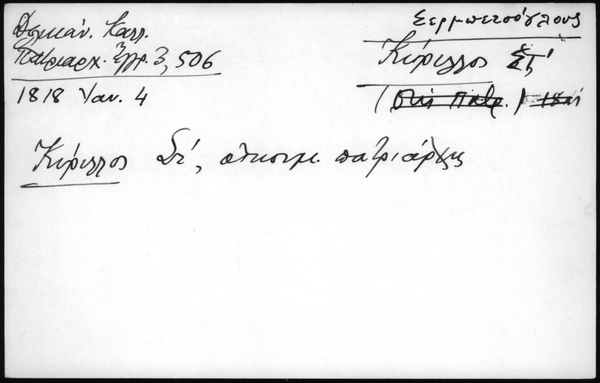 Δελικάν. Καλλ.
Πατριαρχ. Ἔγγρ. 3, 506
1818 Ἰαν. 4
Σερμπετσόγλους
Κύριλλος Στ΄
Κύριλλος Στ΄, οἰκουμ. πατριάρχης